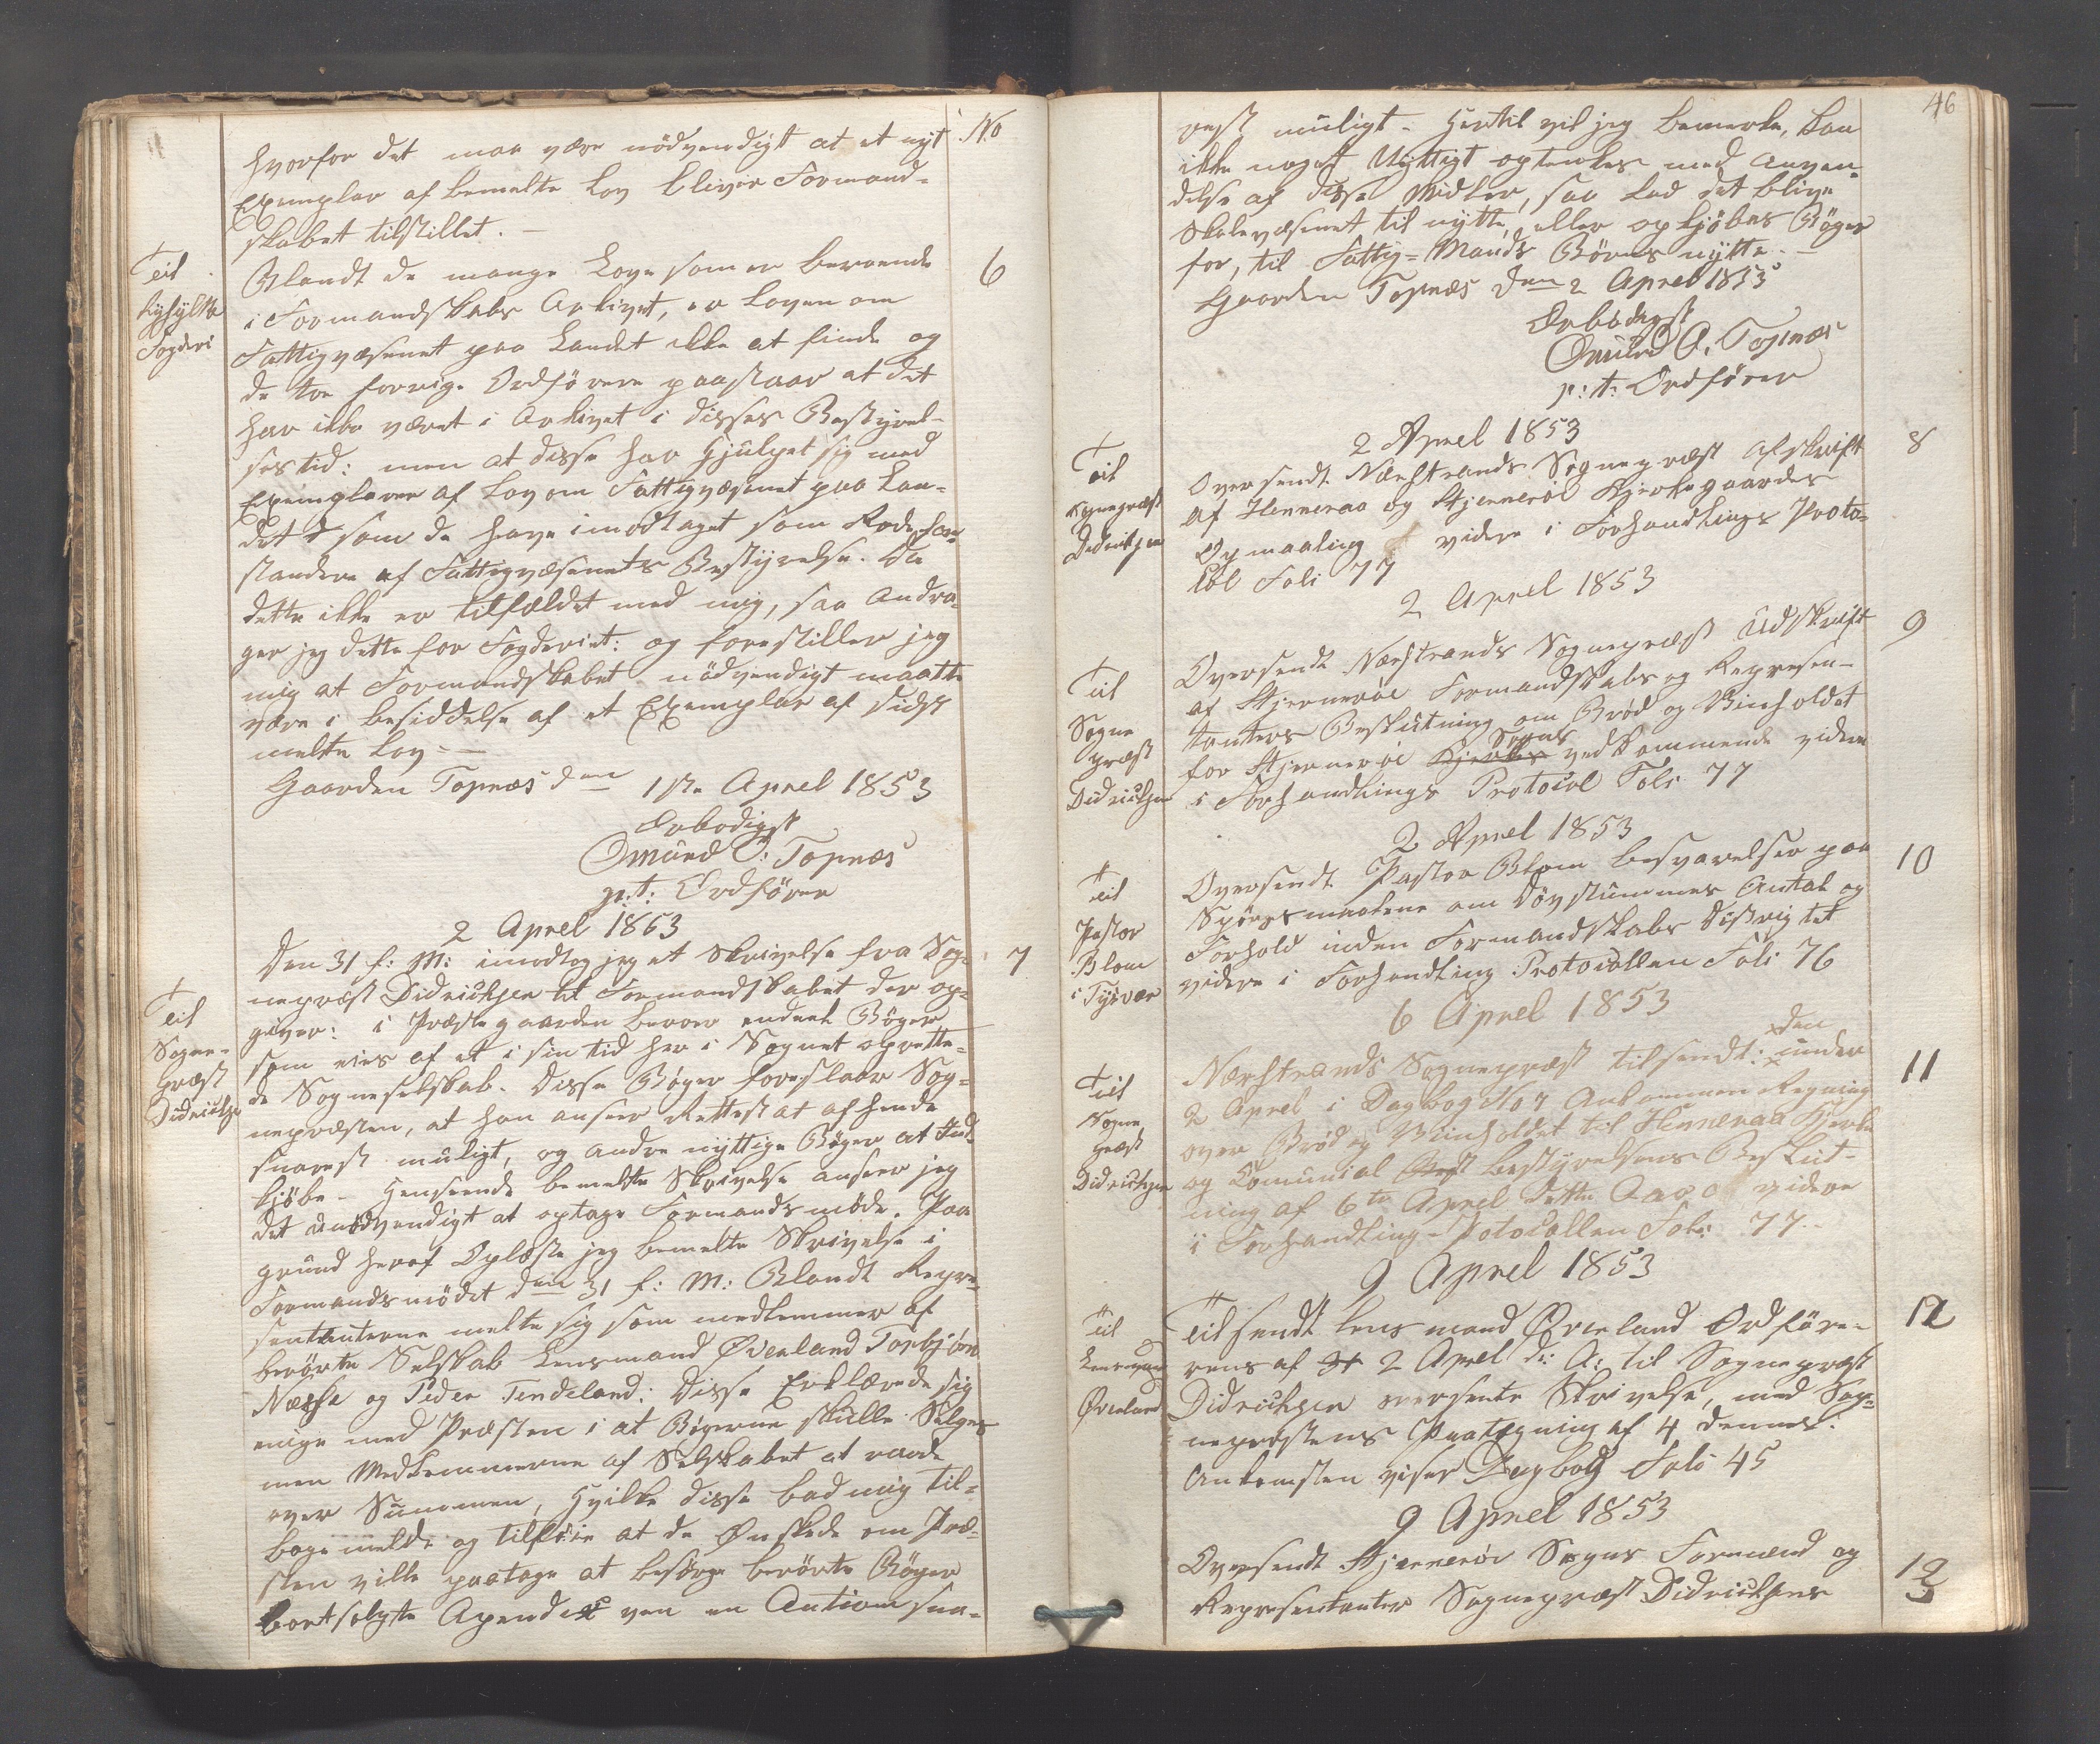 No
hvorfor det maa være nödvendigt at et nyt
Exemplar af bemelte Lov bliver Formand-
skabet tilstillet. —
Til
Ryfylke
Fogderi
Blandt de mange Love som er beroende
6
i Formandskabs Arkivet, er Loven om
Fattigvæsenet paa Landet ikke at finde og
de tre forrige Ordförere paastaar at det
har ikke været i Arkivet i disses Bestyrel-
sestid: men at disse har hjulpet sig med
Exemplarer af Lov om Fattigvæsenet paa Lan-
det som de have imodtaget som Rodefore-
standere af Fattigvæsenets Bestyrelse. Da
dette ikke er tilfældet med mig, saa andra-
ger jeg dette for Fogderiet: og forestiller jeg
mig at Formandskabet nödvendigt maatte
være i besiddelse af et Exemplar af sidst
melte Lov. —
Gaarden Topnæs den 1ste Aprel 1853
Erbødigst
Omund O. Topnæs
p: t: Ordförer
2 Aprel 1853
Til
Sogne-
præst
Didrichsen
Den 31 f: M: imodtog jeg et Skrivelse fra Sog-
7
nepræst Didrichsen til Formandskabet der op-
giver: i Præstegaarden beroer endeel Böger
som eies af et i sin tid her i Sognet oprette-
de Sogneselskab. Disse Böger foreslaar Sog-
nepræsten, at han anseer Rettest at afhende
snarest muligt, og andre nyttige Böger at ind-
kjöbe - Henseende bemelte Skrivelse anseer jeg
det unødvendigt at optage Formandsmöde. Paa
grund heraf Oplæste jeg bemelte Skrivelse i
Formandsmödet den 31 f: M: Blandt Repre-
sentanterne melte sig som medlemmer af
berörte Selskab Lensmand Øverland Torbjörn
Næsse og Peder Tendeland: Disse Erklærede sig
enige med Præsten i at Bögerne skulle Selges
men Medlemmerne af Selskabet at raade
over Summen, Hvilke disse bad mig til-
bage melde og tilföie at de Ønskede om Præ-
sten ville paatage at besörge berörte Böger
bortsolgte ved en Auction sna-
46
rest muligt. Hertil vil jeg bemerke, kan
ikke noget Nyttigt optenkes med anven-
delse af disse Midler, saa lad det blive
Skolevæsenet til nytte, eller opkjöbes Böger
for, til Fattig-Mands Börns nytte. —
Gaarden Topnæs den 2 Aprel 1853
Erbödigst
Omund O. Topnæs
p: t: Ordförer
2 Aprel 1853
Til
Sognepræst
Didrichsen
Oversendt Nærstrands Sognepræst Afskrift
8
af Henneraa og Hjernerøe Kjerkegaardes
Opmaaling videre i Forhandlings Proto-
kol Foli 77
2 Aprel 1853
Til
Sogne
præst
Didrichsen
Oversendt Nærstrands Sognepræst Udskrift
9
af Hjernerøe Formandskabs og Represen-
tanters Beslutning om Bröd og Viinholdet
for Hjernerøe Kjerkes Sogns vedkommende videre
i Forhandlings Protocol Foli 77
2 Aprel 1853
Til
Pastor
Blom
i Tysvær
Oversendt Pastor Blom besvarelser paa
10
Spörgsmaalene om Dövstummes Antal og
Forhold inden Formandskabs Distrigtet
videre i Forhandling Protocollen Foli 76
6 Aprel 1853
Til
Sogne
præst
Didrichsen
Nærstrands Sognepræst tilsendt: den under
11
2 Aprel i Dagbog No 7 Ankommen Regning
over Bröd og Viinholdet til Henneraa Kjerke
og Comunial bestyrelsens Beslut-
ning af 6te Aprel dette Aar videre
i Forhandling-Potocollen Foli 77 -
9 Aprel 1853
Til
Lensmand
Øverland
Tilsendt Lensmand Øverland Ordföre-
12
rens af 2 Aprel d: A: til Sognepræst
Didrichsen oversente Skrivelse, med Sog-
nepræstens Paategning af 4 dennes:
Ankomsten viser Dagbog Foli 45
9 Aprel 1853
Oversendt Hjernerøe Sogns Formænd og
13
Representanter Sognepræst Didrichsens